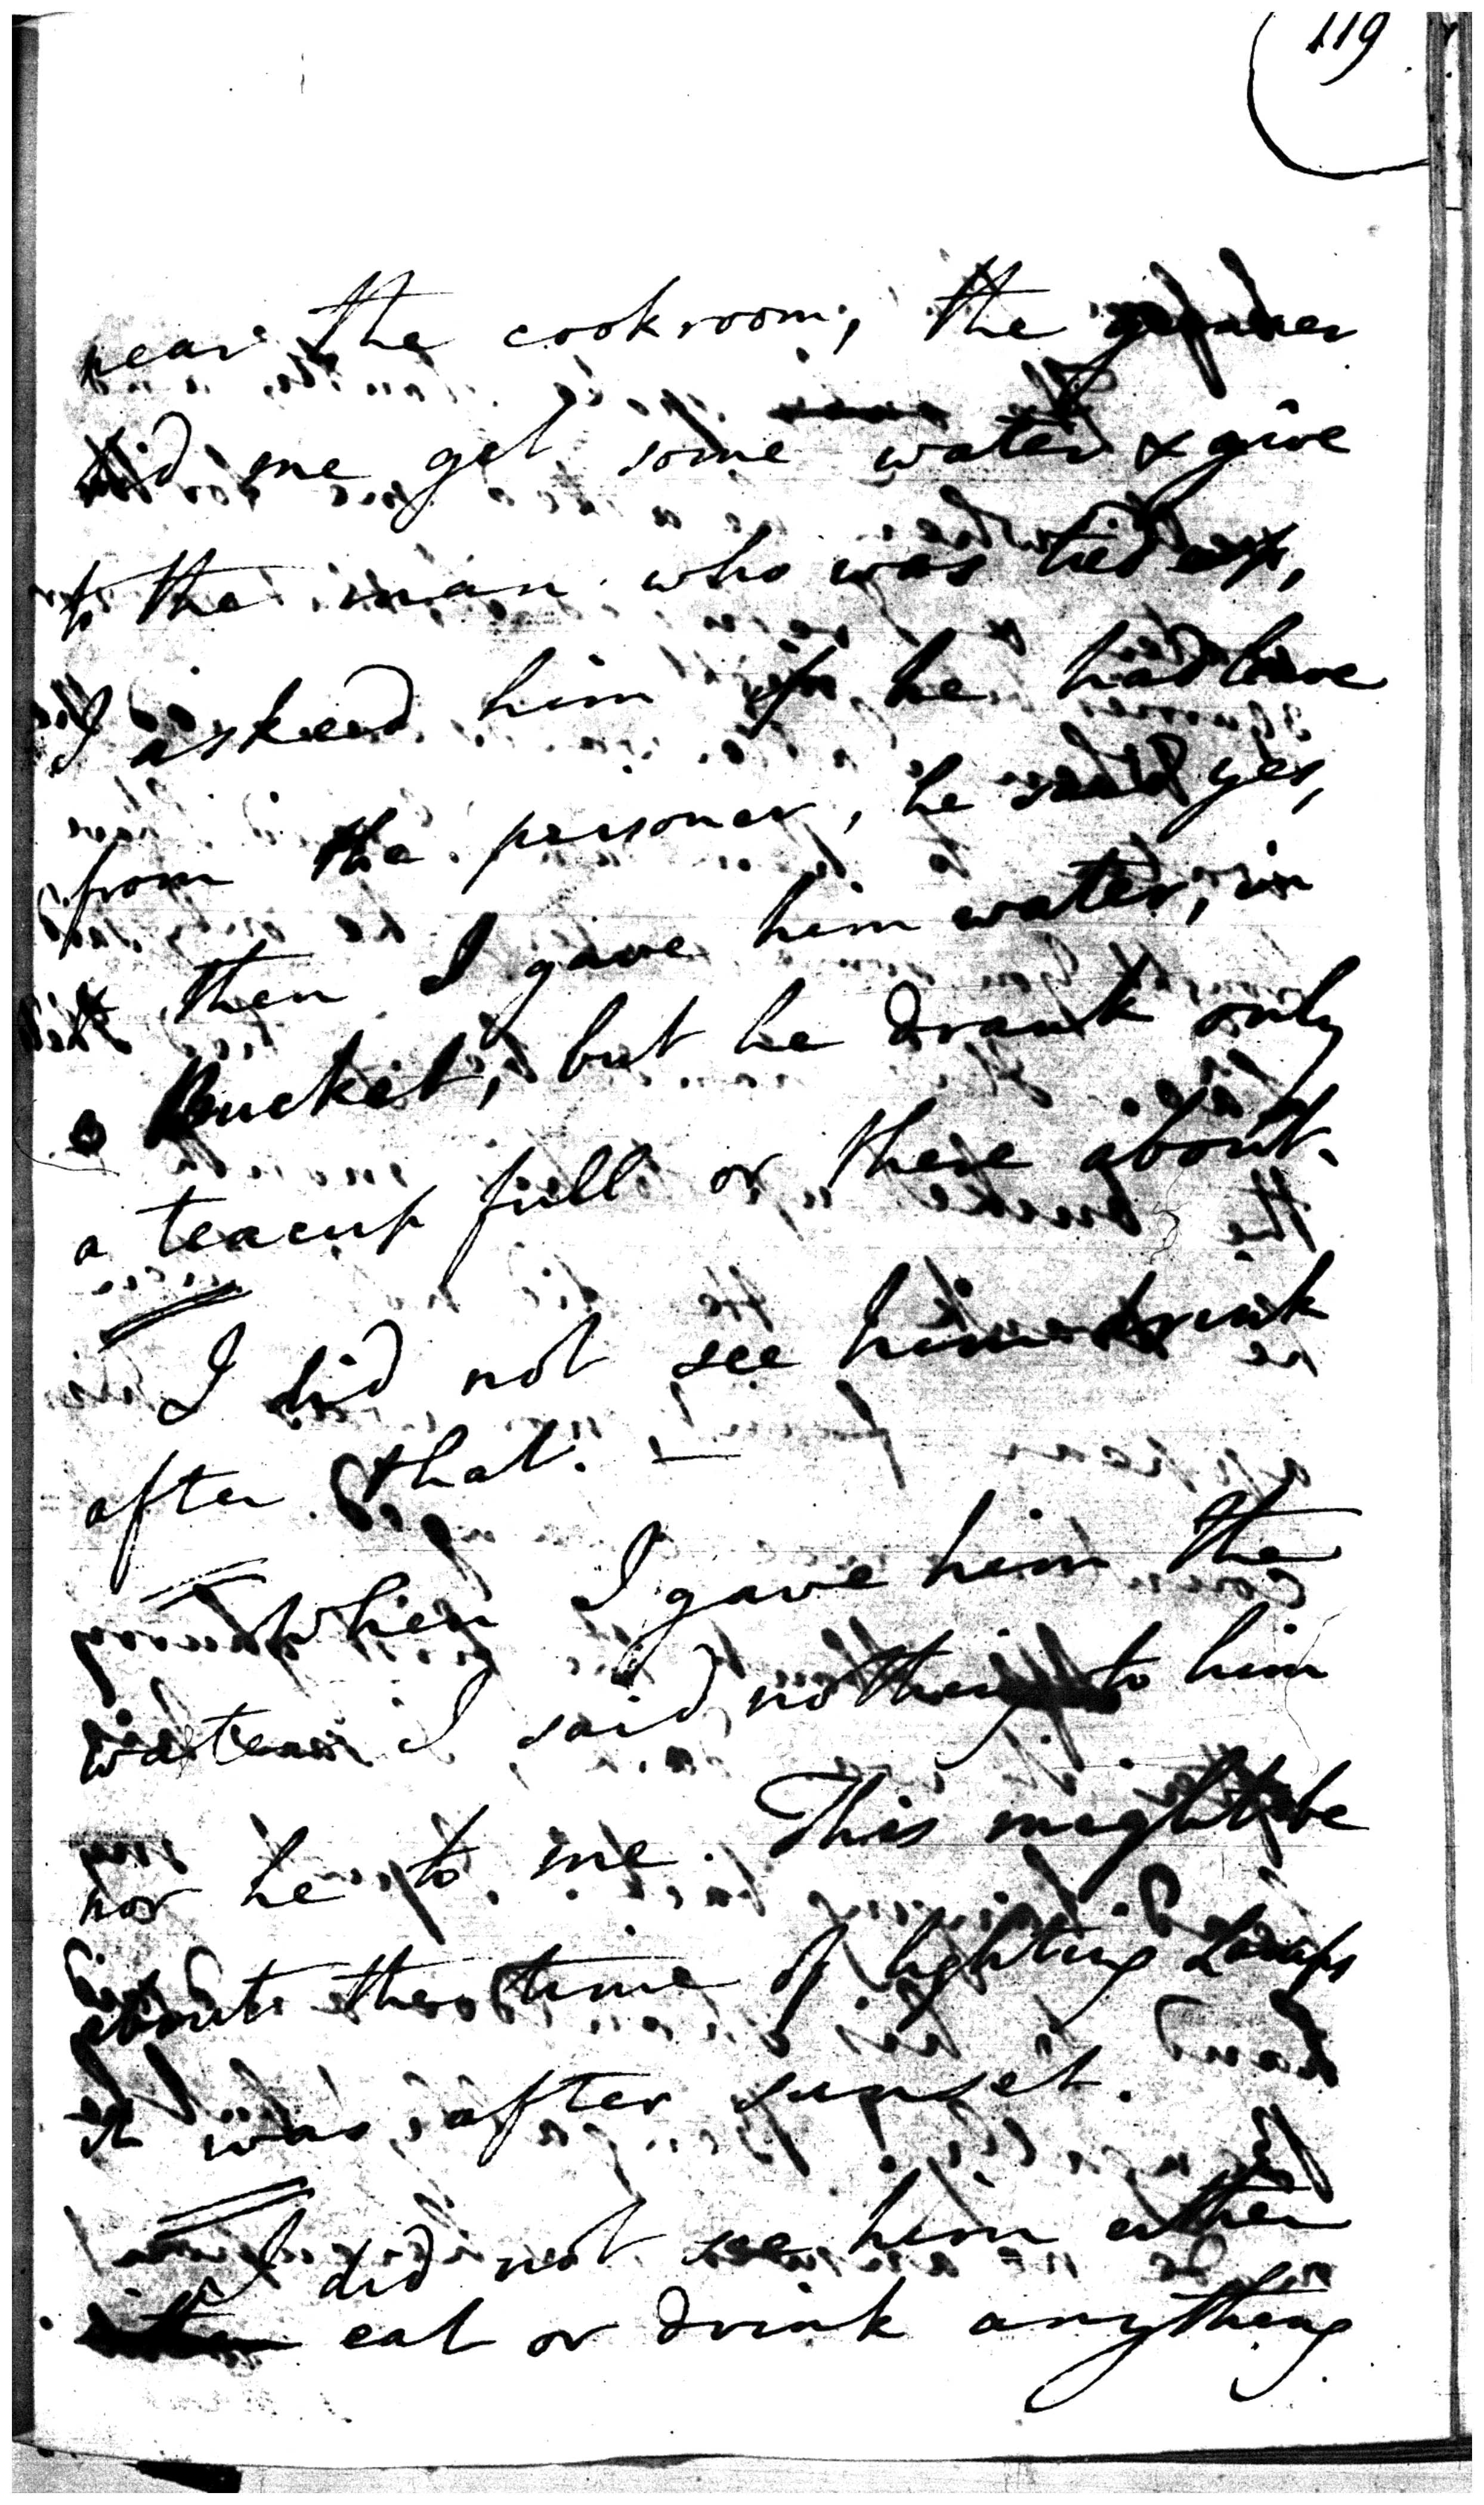 119
near the cookroom, the
bid me get some water & give
to the man who was tied up,
I asked him if he had leave
from the prisoner, he said yes,
then I gave him water, in
a Bucket, but he drank only
a teacup full or there about.
I did not see him drink
after that. —
When I gave him the
water I said nothing to him
nor he to me. This might be
about the time of lighting Lamps
it was after sunset.
I did not see him either
eat or drink anything